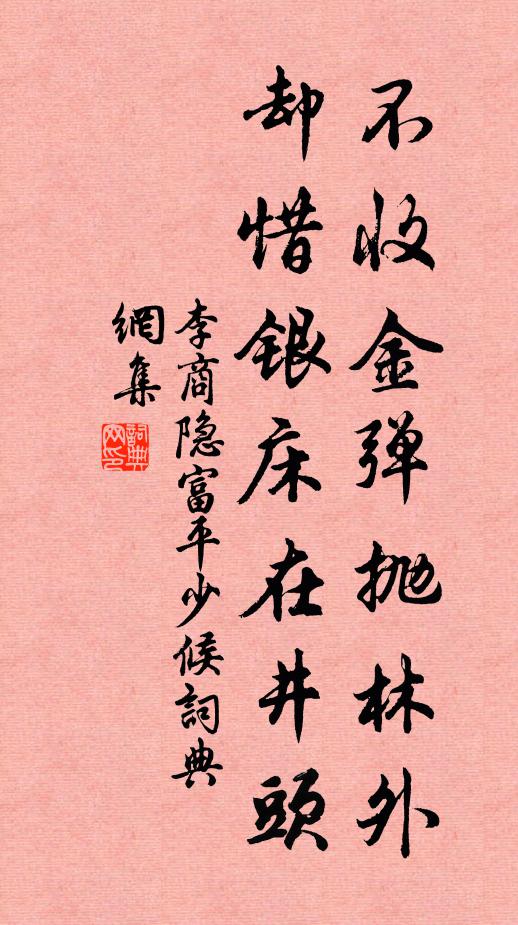 不收金弹抛林外
却惜银床在井頭
李商隐富平少候詞典
網集
詞典網印